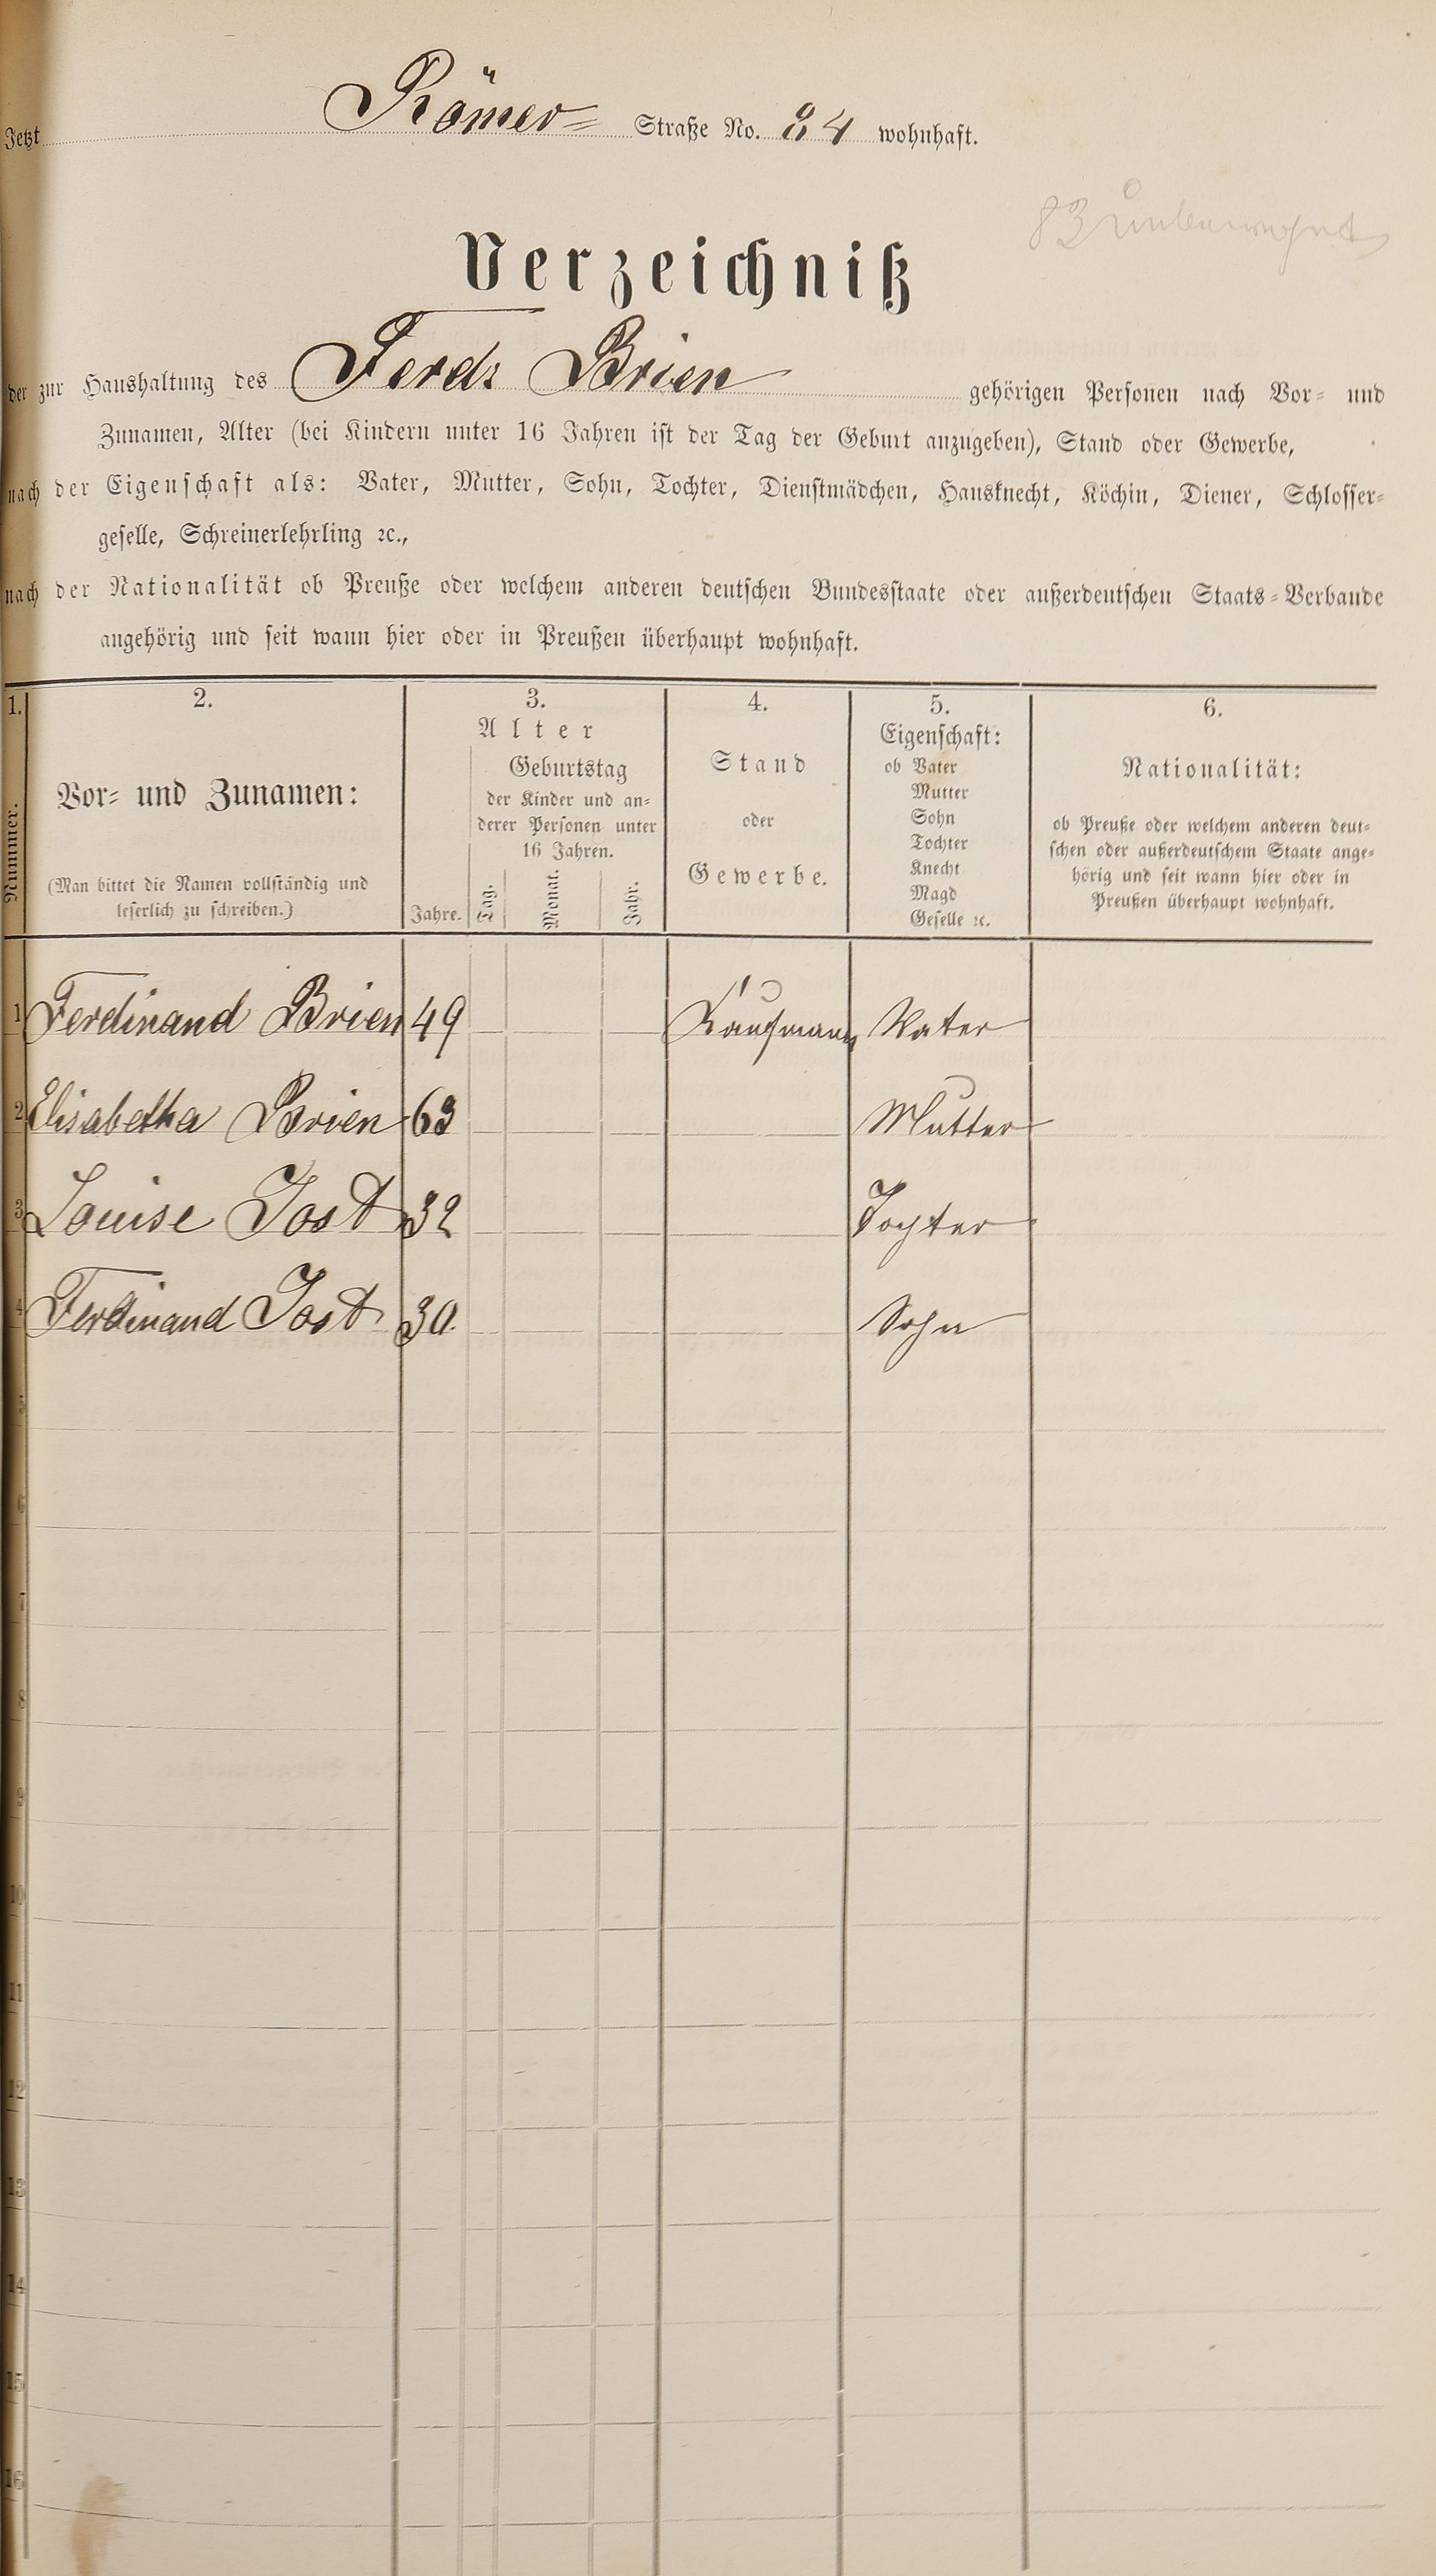 Jetzt Römer= Straße No. 84 wohnhaft.
83 unbewohnt
Verzeichniß
der zur Haushaltung des Ferd: Brien gehörigen Personen nach Vor= und
Zunamen, Alter (bei Kindern unter 16 Jahren ist der Tag der Geburt anzugeben), Stand oder Gewerbe,
nach der Eigenschaft als: Vater, Mutter, Sohn, Tochter, Dienstmädchen, Hausknecht, Köchin, Diener, Schlosser=
geselle, Schreinerlehrling ꝛc.,
nach der Nationalität ob Preuße oder welchem anderen deutschen Bundesstaate oder außerdeutschen Staats=Verbande
angehörig und seit wann hier oder in Preußen überhaupt wohnhaft.
1. 2. 3. 4. 5. 6.
Nummer.
Vor= und Zunamen:
(Man bittet die Namen vollständig und
leserlich zu schreiben.)
Alter
Jahre.
Geburtstag
der Kinder und an=
derer Personen unter
16 Jahren.
Tag. Monat. Jahr.
Stand
oder
Gewerbe.
Eigenschaft:
ob Vater
Mutter
Sohn
Tochter
Knecht
Magd
Geselle ꝛc.
Nationalität:
ob Preuße oder welchem anderen deut=
schen oder außerdeutschem Staate ange=
hörig und seit wann hier oder in
Preußen überhaupt wohnhaft.
1 Ferdinand Brien 49 Kaufmann Vater
2 Elisabetha Brien 63 Mutter
3 Louise Jost 32 Tochter
4 Ferdinand Jost 30. Sohn
5
6
7
8
9
10
11
12
13
14
15
16